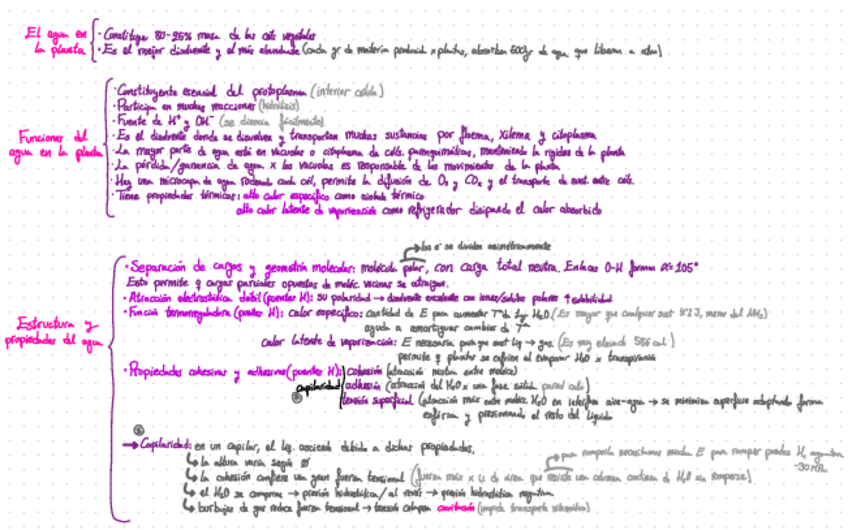 El agua en la planta
· Constituye 80-95% masa de las céls vegetales
· Es el mejor disolvente y el más abundante (cada gr de materia producida x plantas, absorben 500gr de agua que liberan a atm)
Funciones del agua en la planta
· Constituyente esencial del protoplasma (interior célula)
· Participa en muchas reacciones (hidrólisis)
· Fuente de H⁺ y OH⁻ (se disocia fácilmente)
· Es el disolvente donde se disuelven y transportan muchas sustancias por floema, xilema y citoplasma
· La mayor parte de agua está en vacuolas o citoplasma de céls. parenquimáticas, manteniendo la rigidez de la planta
· La pérdida/ganancia de agua x las vacuolas es responsable de los movimientos de la planta
· Hay una microcapa de agua rodeando cada cél, permite la difusión de O₂ y CO₂ y el transporte de sust. entre céls.
· Tiene propiedades térmicas: alto calor específico como aislante térmico
alto calor latente de vaporización como refrigerador disipando el calor absorbido
Estructura y propiedades del agua
los e⁻ se dividen asimétricamente
· Separación de cargas y geometría molecular: molécula polar, con carga total neutra. Enlaces O-H forman α=105°
Esto permite q cargas parciales opuestas de moléc. vecinas se atraigan.
· Atracción electrostática débil (puentes H): su polaridad → disolvente excelente con iones/solutos polares ↑ solubilidad
· Función termorreguladora (puentes H): calor específico: cantidad de E para aumentar Tª de 1g H₂O. (Es mayor que cualquier sust
ayuda a amortiguar cambios de Tª
calor latente de vaporización: E necesaria para que sust líq → gas. (Es muy elevado 586 cal)
permite q plantas se enfríen al evaporar H₂O x transpiración
· Propiedades cohesivas y adhesivas (puentes H): cohesión (atracción mutua entre moléc)
capilaridad adhesión (atracción del H₂O x una fase sólida pared cel)
tensión superficial (atracción máx entre moléc. H₂O en interfase aire-agua → se minimiza superficie adoptando forma
esférica y presionando al resto del líquido
→ Capilaridad: en un capilar, el líq. asciende debido a dichas propiedades,
↳ la altura varía según Ø
para romperla necesitamos mucha E para romper puentes H,
-30 MPa
↳ la cohesión confiere una gran fuerza tensional (fuerza máx x u. de área que resiste una columna continua de H₂O sin romperse)
↳ el H₂O se comprime → presión hidrostática / al revés → presión hidrostática negativa
↳ burbujas de gas reduce fuerza tensional → tensión colapsa cavitación (impide transporte